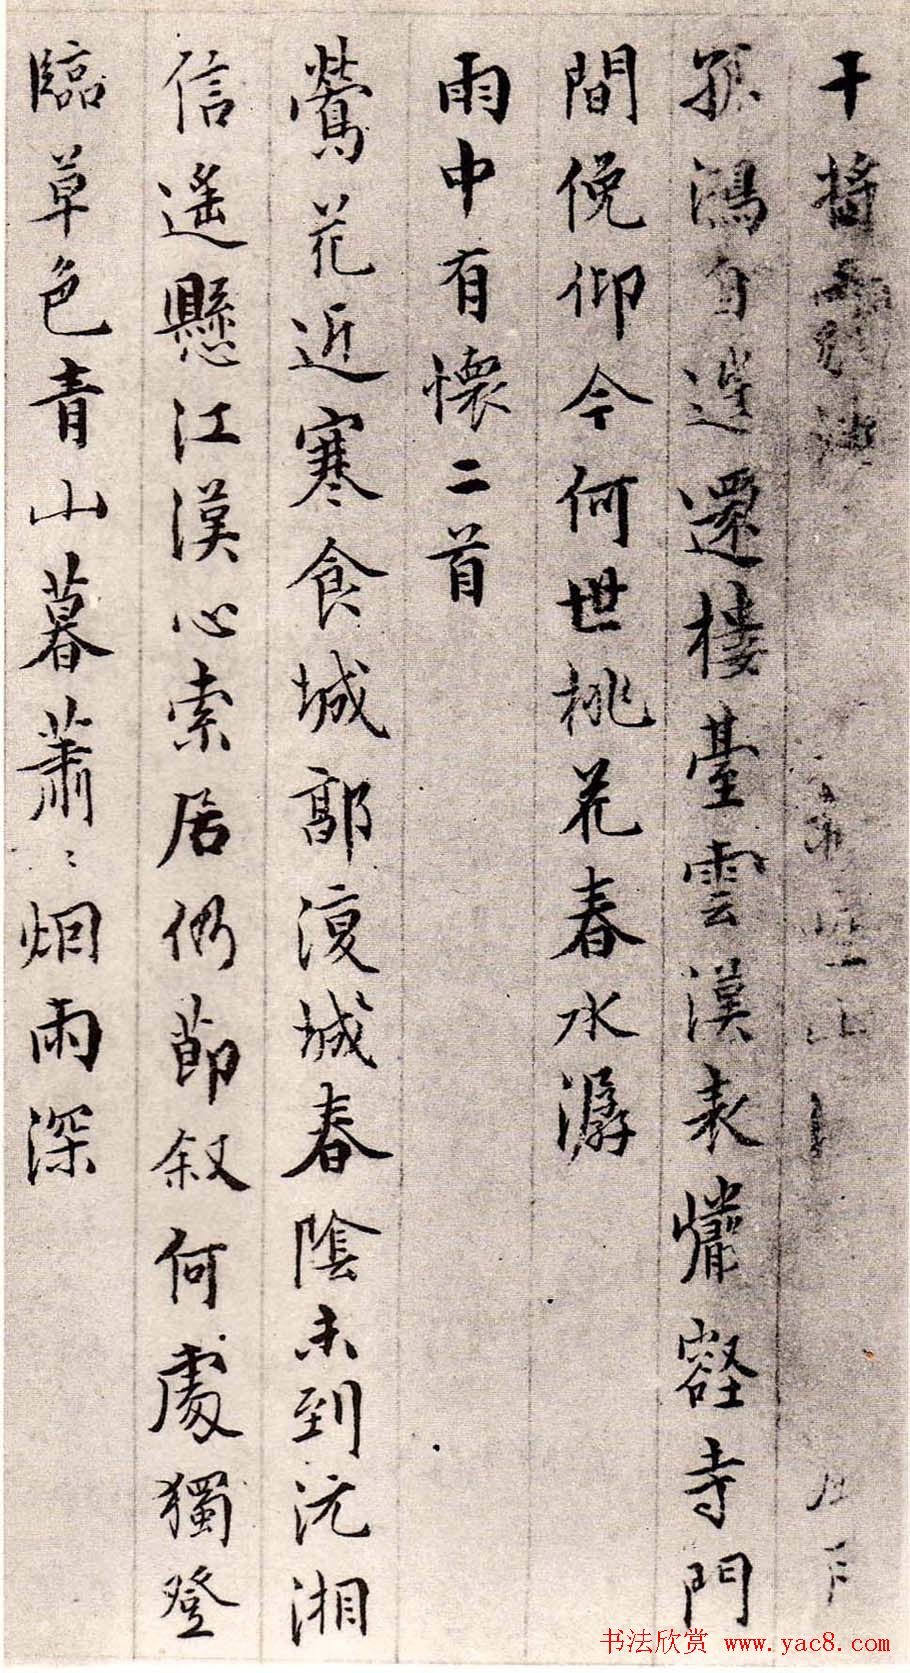 干將
孤鴻自逹還樓臺雲漢表巖壑寺門
間俛仰今何世桃花春水潺
雨中有懷二首
鶯花近寒食城郭復城春陰未到沅湘
信遥懸江漢心索居仍莭叙何處獨登
臨草色青山暮蕭〻烟雨深
书法欣赏 www.yac8.com